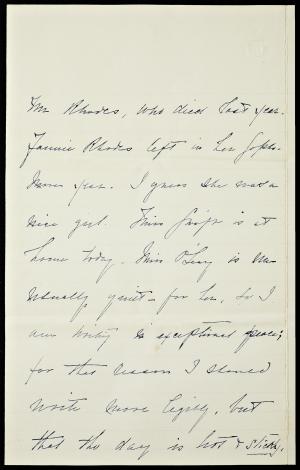 Mr Rhodes, who died last year.
Fannie Rhodes left in her Soph-
more year. I guess she was a
nice girl. Miss Swift is at
home today. Miss O'Leary is un-
usually quiet – for her, so I
am writing in exceptional peace;
for that reason I should
write more legibly, but
that the day is hot & sticky.